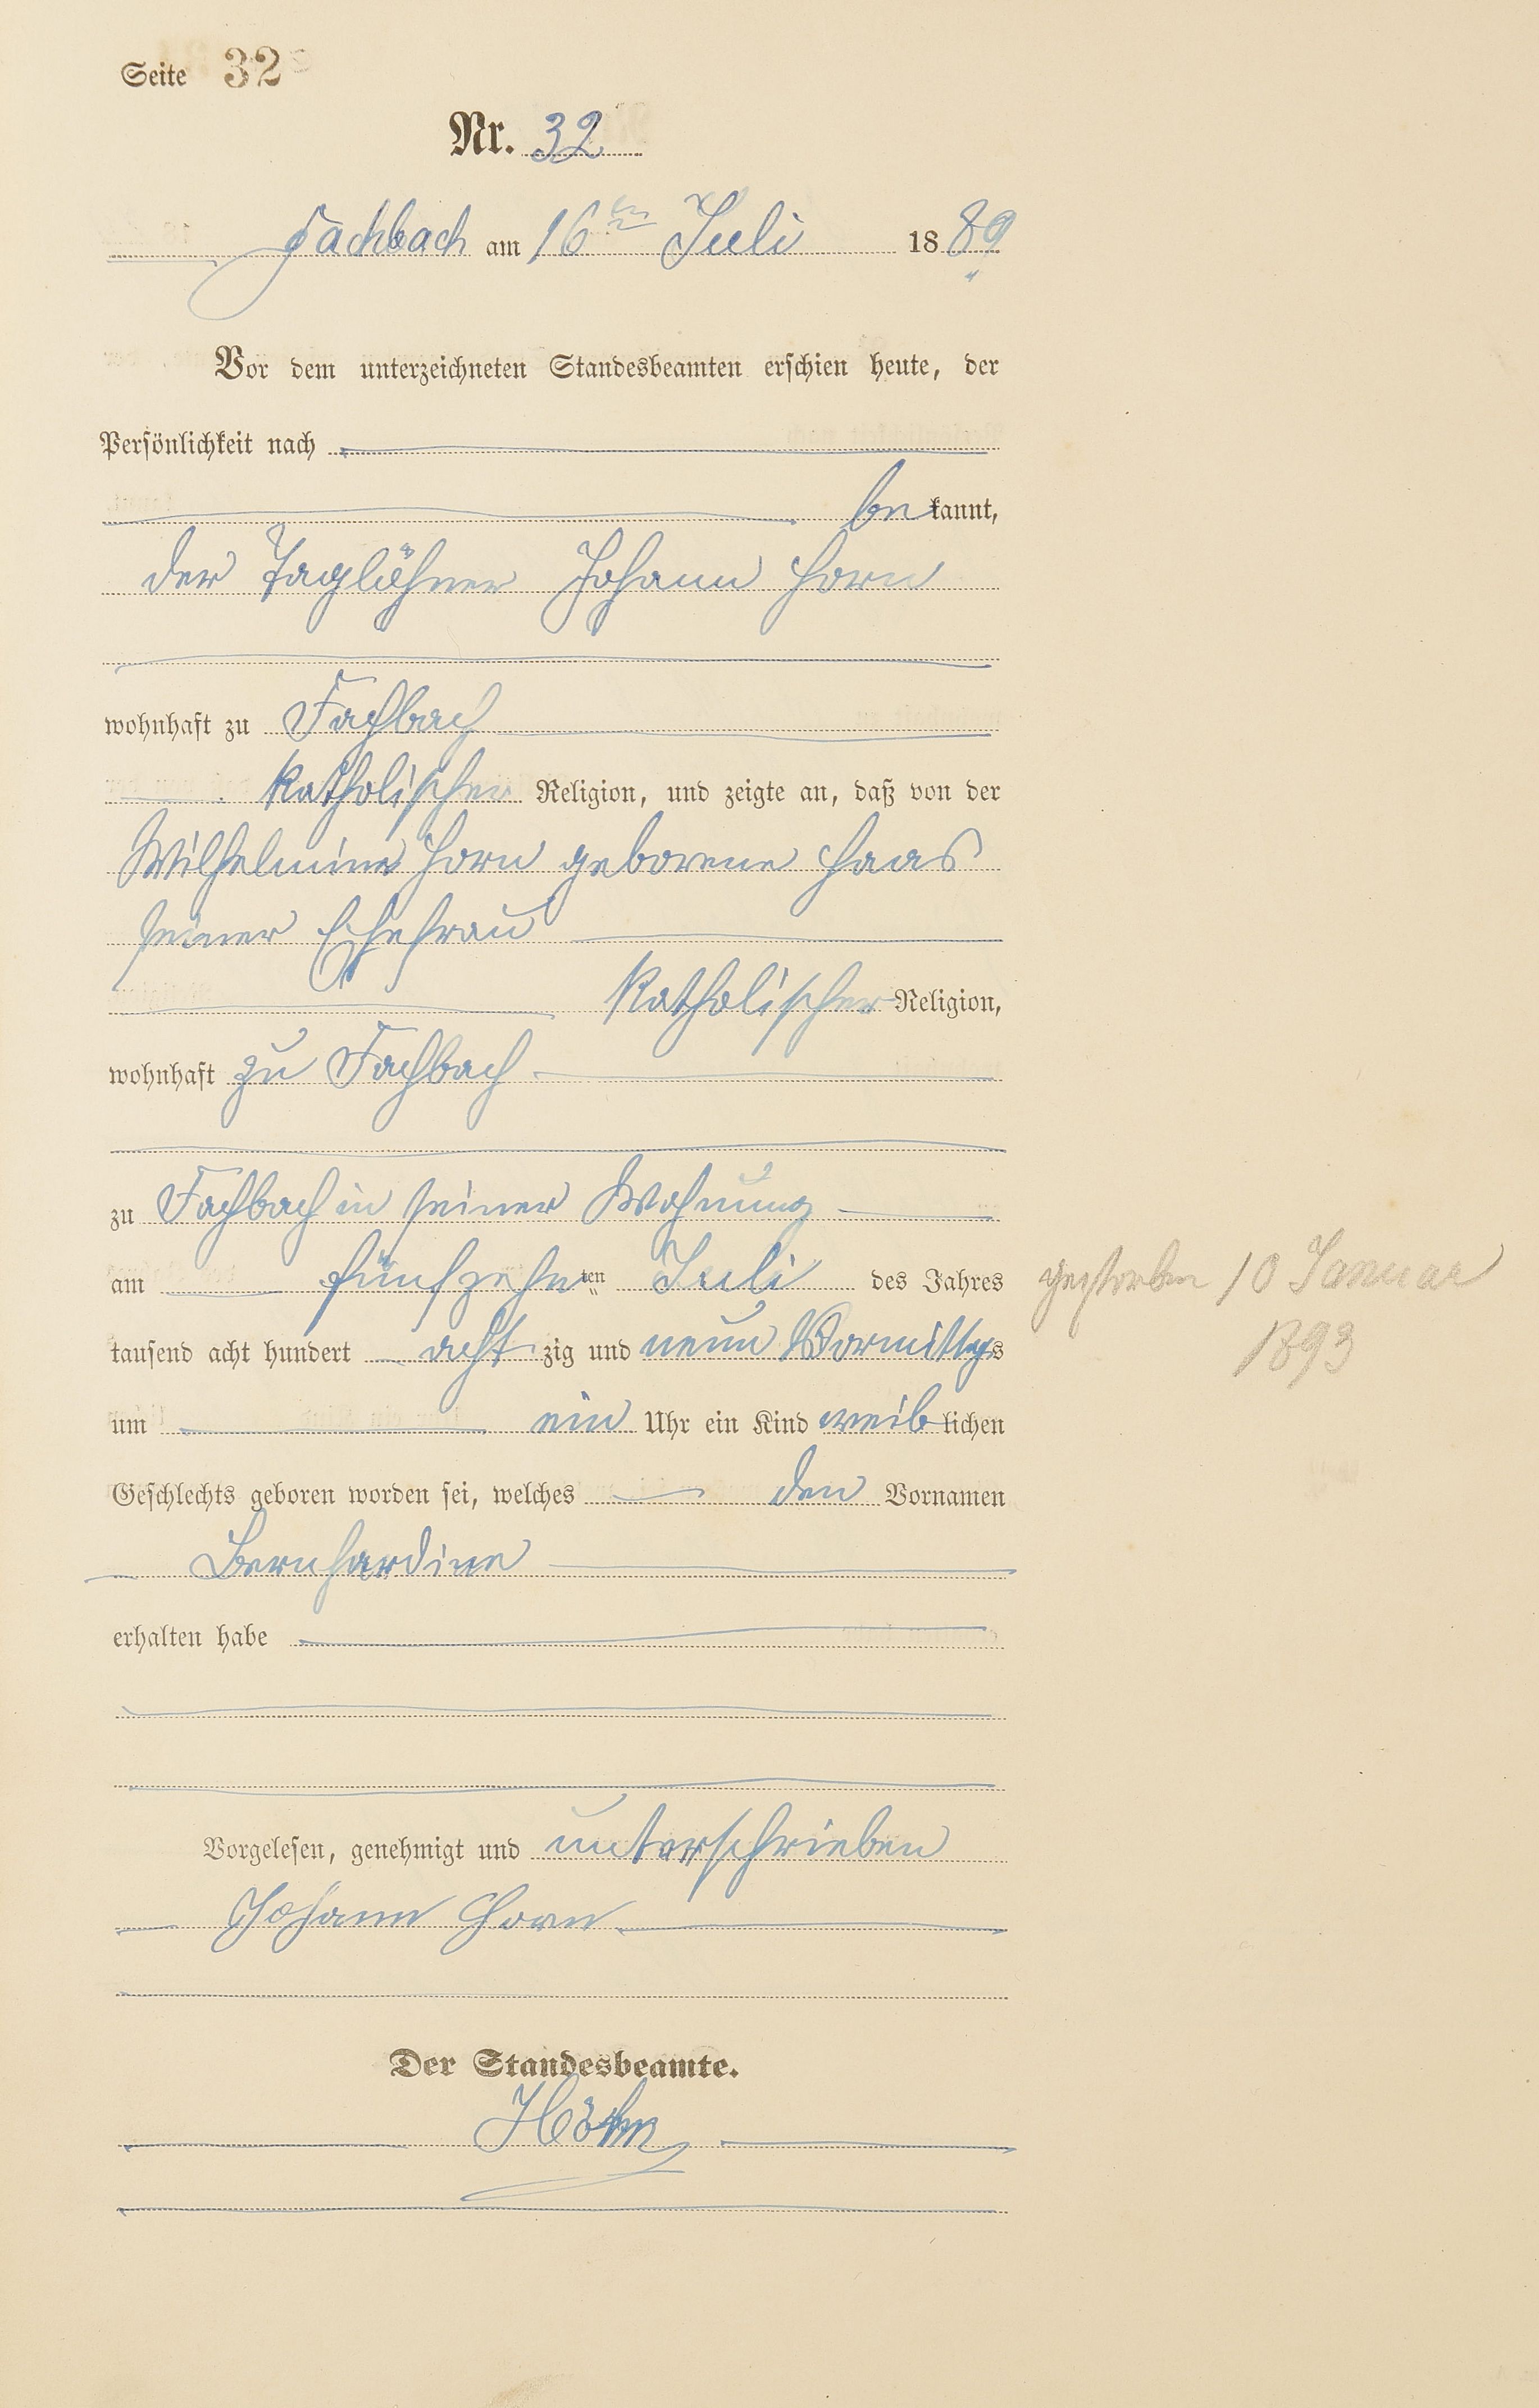 Seite 32
Nr. 32
Fachbach am 16ten Juli 1889
Vor dem unterzeichneten Standesbeamten erschien heute, der
Persönlichkeit nach
bekannt,
der Taglöhner Johann Horn
wohnhaft zu Fachbach
katholischer Religion, und zeigte an, daß von der
Wilhelmine Horn geborene Haas
seiner Ehefrau
katholischer Religion,
wohnhaft zu Fachbach
zu Fachbach in seiner Wohnung
am fünfzehnten Juli des Jahres
tausend acht hundert achtzig und neun Vormittags
um ein Uhr ein Kind weiblichen
Geschlechts geboren worden sei, welches den Vornamen
Bernhardine
erhalten habe
Vorgelesen, genehmigt und unterschrieben
Johann Horn
Der Standesbeamte.
gestorben 10 Januar
1893